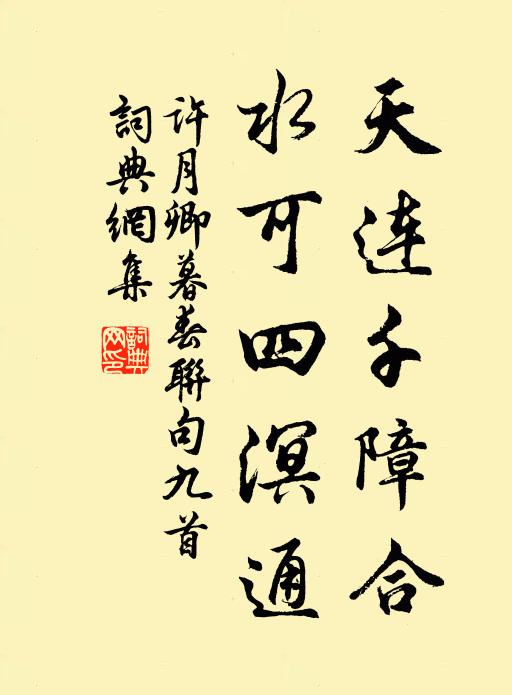 天连千障合
水可四溟通
許月卿暮春聯句九首
詞典網集
詞典网印